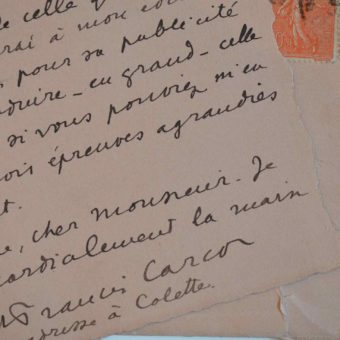 de celle qu
rai à mon
pour sa publicité
duire - en grand - celle
si vous pouviez m'en
ois épreuves agrandies
t.
, cher monsieur. Je
cordialement la main
Francis Carco
adresse à Colette.